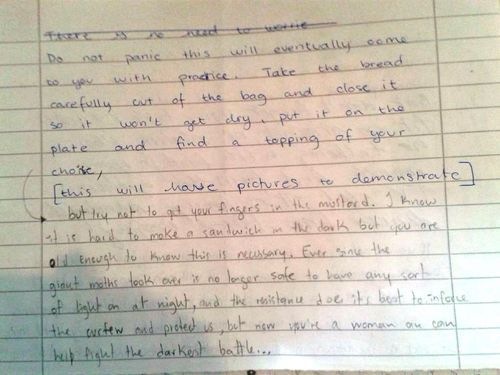 There is no need to worrie
Do not panic this will eventually come
to you with practice. Take the bread
carefully out of the bag and close it
so it won't get dry, put it on the
plate and find a topping of your
choise,
[this will have pictures to demonstrate]
but try not to get your fingers in the mustard. I know
it is hard to make a sandwich in the dark but you are
old enough to know this is necessary. Ever since the
giant moths took over is no longer safe to have any sort
of light on at night, and the resistance does it's best to inforce
the curfew and protect us, but now you're a woman an can
help fight the darkest battle...